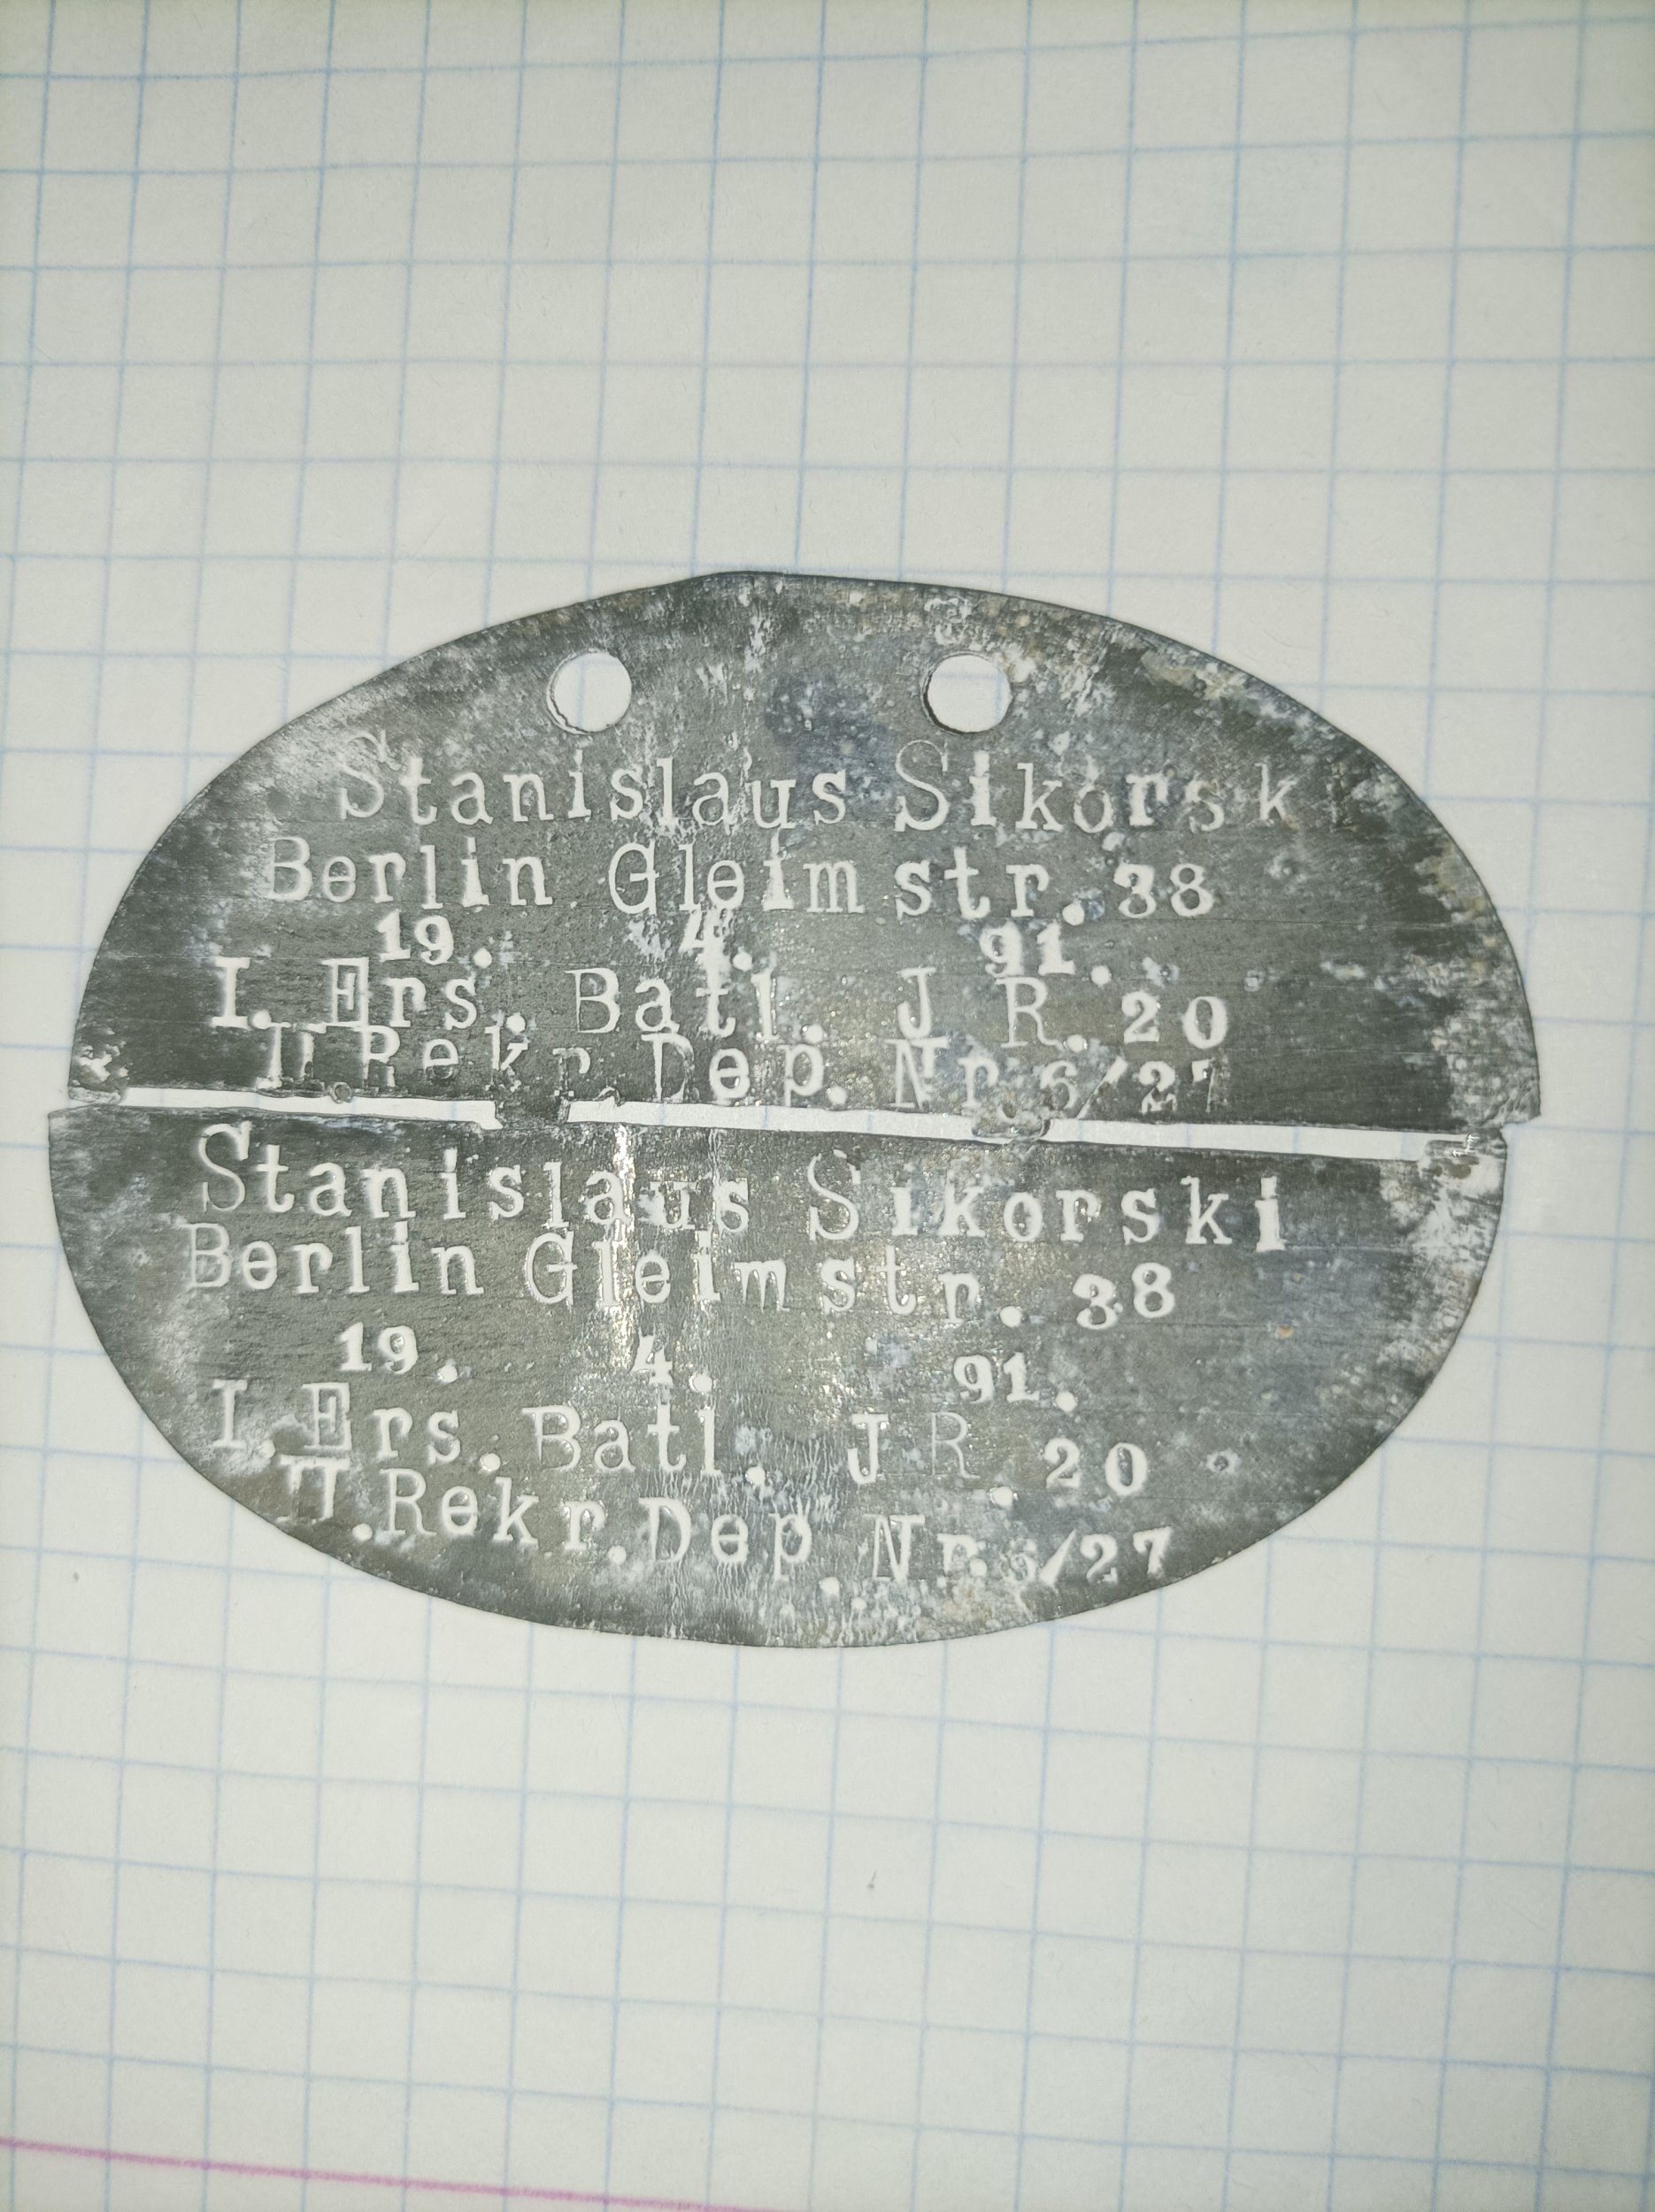 Stanislaus Sikorski
Berlin Gleimstr. 38
19. 4. 91.
I. Ers. Batl. J R. 20
II Rekr. Dep. Nr. 6/27
Stanislaus Sikorski
Berlin Gleimstr. 38
19. 4. 91.
I. Ers. Batl. J R. 20
II. Rekr. Dep. Nr. 6/27